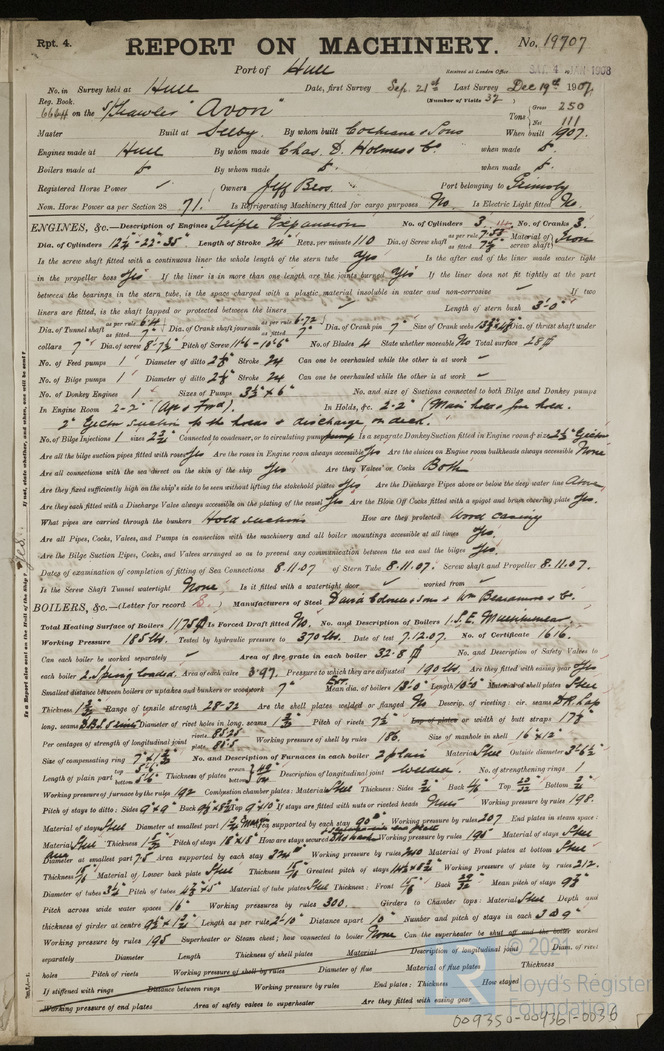 Rpt. 4.
REPORT ON MACHINERY.
No. 19707
Port of Hull
Received at London Office SAT. 4 JAN 1908
No. in Survey held at Hull Date, first Survey Sep. 21st Last Survey Dec 19th 1907
Reg. Book. (Number of Visits 32)
6644 on the S/Trawler "Avon" Tons Gross 250 Net 111
Master Built at Selby. By whom built Cochrane & Sons When built 1907.
Engines made at Hull By whom made Chas. D. Holmes & Co. when made
Boilers made at By whom made when made
Registered Horse Power Owners Jeff Bros. Port belonging to Grimsby
Nom. Horse Power as per Section 28 71. Is Refrigerating Machinery fitted for cargo purposes No. Is Electric Light fitted No.
ENGINES, &c.—Description of Engines Triple Expansion No. of Cylinders 3 No. of Cranks 3.
Dia. of Cylinders 12¼-22-35" Length of Stroke 24" Revs. per minute 110 Dia. of Screw shaft as per rule 7.53 as fitted Material of screw shaft Iron
Is the screw shaft fitted with a continuous liner the whole length of the stern tube Yes Is the after end of the liner made water tight
in the propeller boss Yes If the liner is in more than one length are the joints burned Yes If the liner does not fit tightly at the part
between the bearings in the stern tube, is the space charged with a plastic material insoluble in water and non-corrosive If two
liners are fitted, is the shaft lapped or protected between the liners Length of stern bush 3'-0"
Dia. of Tunnel shaft as per rule 6.4 as fitted 7" Dia. of Crank shaft journals as per rule 6.72 as fitted 7" Dia. of Crank pin 7" Size of Crank webs Dia. of thrust shaft under
collars 7" Dia. of screw 8'-7½" Pitch of Screw 11'6-10'6" No. of Blades 4 State whether moveable No Total surface 28
No. of Feed pumps 1 Diameter of ditto 2½" Stroke 24 Can one be overhauled while the other is at work
No. of Bilge pumps 1 Diameter of ditto 2½" Stroke 24 Can one be overhauled while the other is at work
No. of Donkey Engines 1 Sizes of Pumps 3½" x 6" No. and size of Suctions connected to both Bilge and Donkey pumps
In Engine Room 2-2" (Aft & Ford). In Holds, &c. 2-2" (Main hold & fore hold.
2" Ejector suction to the holds & discharge on deck.
No. of Bilge Injections 1 sizes Connected to condenser, or to circulating pump Is a separate Donkey Suction fitted in Engine room & size 2½" Ejector
Are all the bilge suction pipes fitted with roses Yes Are the roses in Engine room always accessible Yes Are the sluices on Engine room bulkheads always accessible None
Are all connections with the sea direct on the skin of the ship Yes Are they Valves or Cocks Both
Are they fixed sufficiently high on the ship's side to be seen without lifting the stokehold plates Yes Are the Discharge Pipes above or below the deep water line Above
Are they each fitted with a Discharge Valve always accessible on the plating of the vessel Yes Are the Blow Off Cocks fitted with a spigot and brass covering plate Yes.
What pipes are carried through the bunkers Hold suctions How are they protected Wood casing
Are all Pipes, Cocks, Valves, and Pumps in connection with the machinery and all boiler mountings accessible at all times Yes.
Are the Bilge Suction Pipes, Cocks, and Valves arranged so as to prevent any communication between the sea and the bilges Yes.
Dates of examination of completion of fitting of Sea Connections 8.11.07 of Stern Tube 8.11.07. Screw shaft and Propeller 8.11.07.
Is the Screw Shaft Tunnel watertight None Is it fitted with a watertight door worked from
BOILERS, &c.—(Letter for record S.) Manufacturers of Steel David Colville & Sons & Wm Beardmore & Co.
Total Heating Surface of Boilers 1175 Is Forced Draft fitted No. No. and Description of Boilers 1. S.E. Multitubular
Working Pressure 185 lbs. Tested by hydraulic pressure to 370 lbs. Date of test 7.12.07. No. of Certificate 1616.
Can each boiler be worked separately Area of fire grate in each boiler 32.8 No. and Description of Safety Valves to
each boiler 2. Spring Loaded. Area of each valve 3.97. Pressure to which they are adjusted 190 lbs. Are they fitted with easing gear Yes
Smallest distance between boilers or uptakes and bunkers or woodwork 7" Mean dia. of boilers 13'-0" Length 10'-0" Material of shell plates Steel
Thickness Range of tensile strength 28-32 Are the shell plates welded or flanged No Descrip. of riveting: cir. seams D.R. Lap
long. seams Diameter of rivet holes in long. seams Pitch of rivets 7½" Lap of plates or width of butt straps
Per centages of strength of longitudinal joint rivets 88.25 plate 85.5 Working pressure of shell by rules 186 Size of manhole in shell 16" x 12"
Size of compensating ring No. and Description of Furnaces in each boiler 2 plain Material Steel Outside diameter
Length of plain part top bottom Thickness of plates crown bottom Description of longitudinal joint Welded. No. of strengthening rings 1
Working pressure of furnace by the rules 192 Combustion chamber plates: Material Steel Thickness: Sides Back Top Bottom
Pitch of stays to ditto: Sides 9" x 9" Back Top 9" x 10" If stays are fitted with nuts or riveted heads Nuts Working pressure by rules 198.
Material of stays Steel Diameter at smallest part Area supported by each stay 90" Working pressure by rules 207 End plates in steam space:
Material Steel Thickness Pitch of stays 18 x 18 How are stays secured Working pressure by rules 195 Material of stays Steel
Area Diameter at smallest part 7.5 Area supported by each stay Working pressure by rules 240 Material of Front plates at bottom Steel
Thickness Material of Lower back plate Steel Thickness Greatest pitch of stays Working pressure of plate by rules 212.
Diameter of tubes 3¼ Pitch of tubes 4½ x 5" Material of tube plates Steel Thickness: Front Back Mean pitch of stays 9½"
Pitch across wide water spaces 16" Working pressures by rules 300. Girders to Chamber tops: Material Steel Depth and
thickness of girder at centre Length as per rule 2'-10" Distance apart 10" Number and pitch of stays in each 3 @ 9"
Working pressure by rules 195 Superheater or Steam chest; how connected to boiler None Can the superheater be shut off and the boiler worked
separately Diameter Length Thickness of shell plates Material Description of longitudinal joint Diam. of rivet
holes Pitch of rivets Working pressure of shell by rules Diameter of flue Material of flue plates Thickness
If stiffened with rings Distance between rings Working pressure by rules End plates: Thickness How stayed
Working pressure of end plates Area of safety valves to superheater Are they fitted with easing gear
Is a Report also sent on the Hull of the Ship? Yes. If not, state whether, and when, one will be sent?
© 2021
Lloyd's Register
Foundation
009350-009361-0036